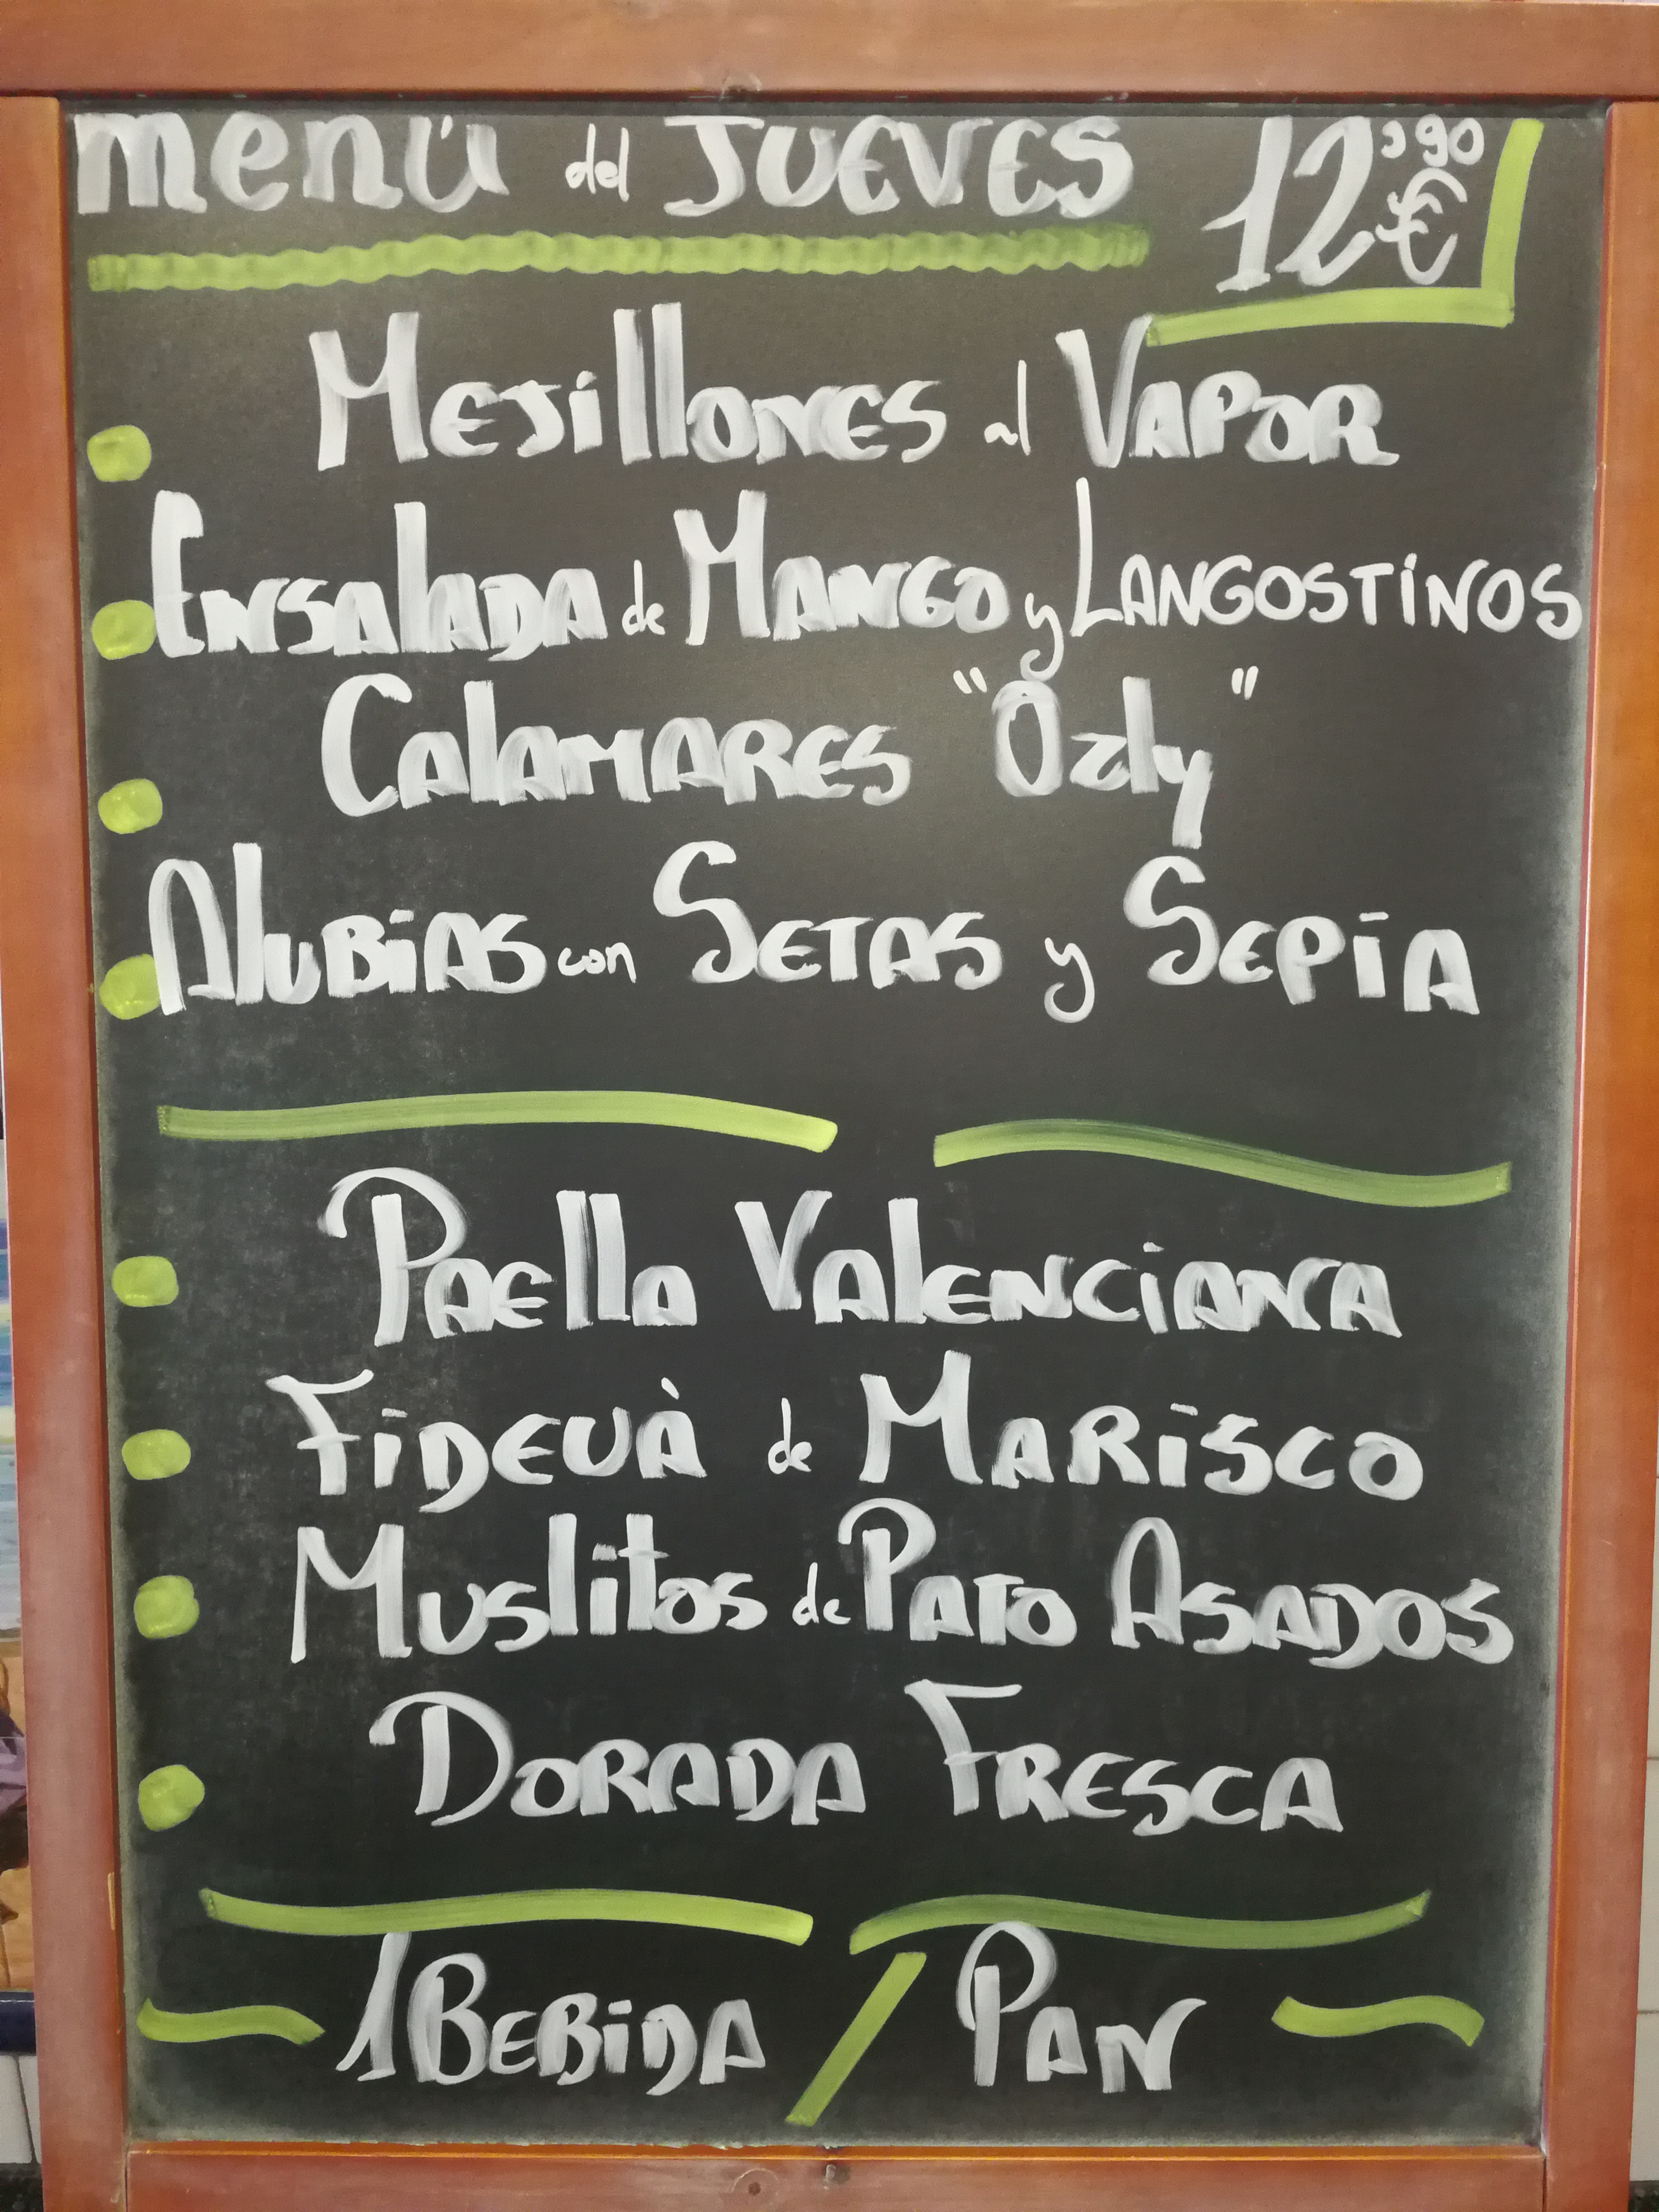 menú del JUEVES 12,90 €
MEJillONES al VAPOR
ENSAlADA de MANGO y LANGOSTiNOS
CAlAMARES "Ozly"
AlUBiAS con SETAS y SEPiA
PAElla VAlENCiANA
FiDEUÀ de MARiSCO
MUSlitos de PATO ASADOS
DORADA FRESCA
1 BEBiDA / PAN